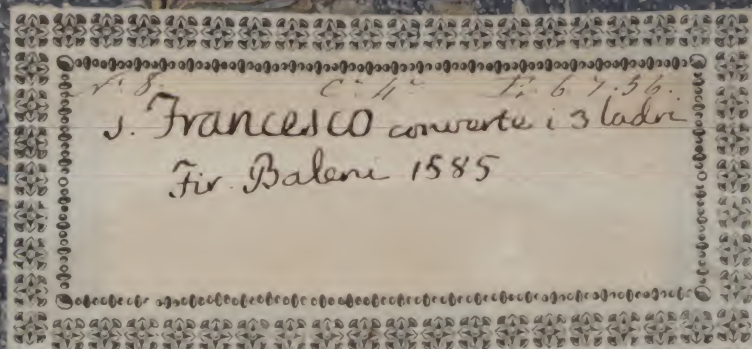 N: 8. C: 4: F: 6 7. 56.
S. Francesco converte i 3 ladri
Fir. Baleni 1585